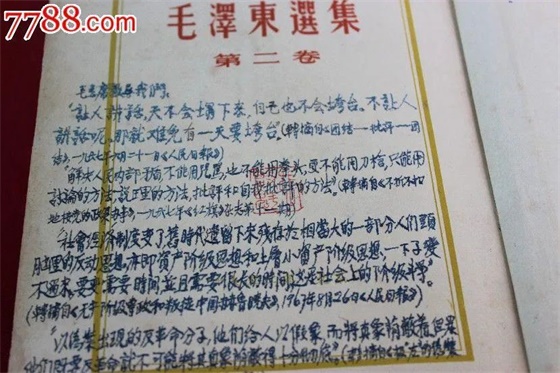 7788.com
毛澤東選集
第二卷
毛主席教导我們:
"让人讲話,天不会塌下来,自己也不会垮台。不让人
讲話呢,那就难免有一天要垮台。(轉摘自《团结—批评—团
结》,一九六七年 月二十一日《人民日報》)
解决人民内部 不能用咒罵,也不能用拳头,更不能用刀枪,只能用
討論的方法,說正里的方法,批評和自我批評的方法。"(轉摘自《
》一九六七年《红旗》杂志第十 期)
"社會經济制度变了,舊時代遺留下来残存於相當大的一部分人們頭
脑里的反动思想,亦即資产阶级思想和上層小資产阶级思想,一下子变
不过来。要变需要時间,並且需要很長的時间,这是社会上的阶级斗爭"
(轉摘自《无产阶级專政和叛徒中国赫魯曉夫》,1967年8月26日《人民日報》)
"以偽裝出現的反革命分子,他們給人以假象,而将真象蔭蔽着。但是
他們既要反革命就不可能将其真象蔭蔽得十分彻底。"( 摘自 的偽裝